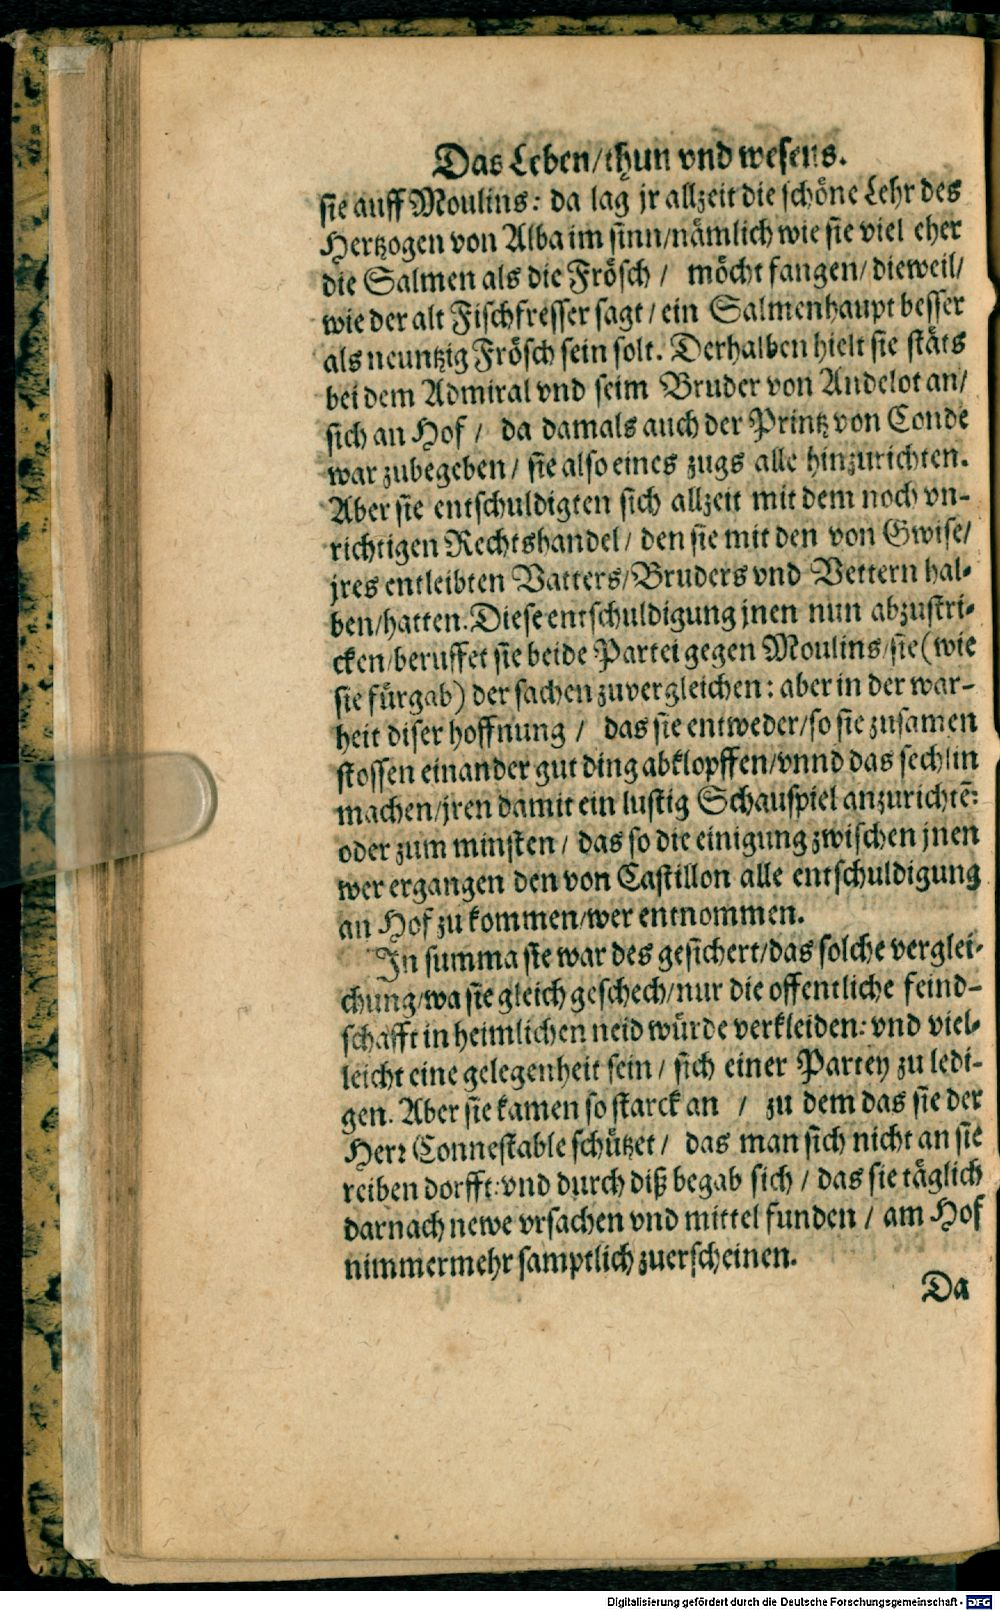 Das Leben/thun vnd wesens.
sie auff Moulins: da lag jr allzeit die schöne Lehr des
Hertzogen von Alba im sinn/nämlich wie sie viel eher
die Salmen als die Frösch / möcht fangen/ dieweil/
wie der alt Fischfresser sagt / ein Salmenhaupt besser
als neuntzig Frösch sein solt. Derhalben hielt sie stäts
bei dem Admiral vnd seim Bruder von Andelot an/
sich an Hof / da damals auch der Printz von Conde
war zubegeben / sie also eines zugs alle hinzurichten.
Aber sie entschuldigten sich allzeit mit dem noch vn-
richtigen Rechtshandel / den sie mit den von Gwise/
jres entleibten Vatters/Bruders vnd Vettern hal-
ben/hatten. Diese entschuldigung jnen nun abzustri-
cken/beruffet sie beide Partei gegen Moulins/sie (wie
sie fürgab) der sachen zuvergleichen: aber in der war-
heit diser hoffnung / das sie entweder/so sie zusamen
stossen einander gut ding abklopffen/vnnd das sechlin
machen/jren damit ein lustig Schauspiel anzurichtē:
oder zum minsten / das so die einigung zwischen jnen
wer ergangen den von Castillon alle entschuldigung
an Hof zu kommen/wer entnommen.
In summa sie war des gesichert/das solche verglei-
chung/wa sie gleich geschech/nur die offentliche feind-
schafft in heimlichen neid würde verkleiden: vnd viel-
leicht eine gelegenheit sein / sich einer Partey zu ledi-
gen. Aber sie kamen so starck an / zu dem das sie der
Herr Connestable schützet / das man sich nicht an sie
reiben dorfft: vnd durch diß begab sich / das sie täglich
darnach newe vrsachen vnd mittel funden / am Hof
nimmermehr samptlich zuerscheinen.
Da
Digitalisierung gefördert durch die Deutsche Forschungsgemeinschaft - DFG